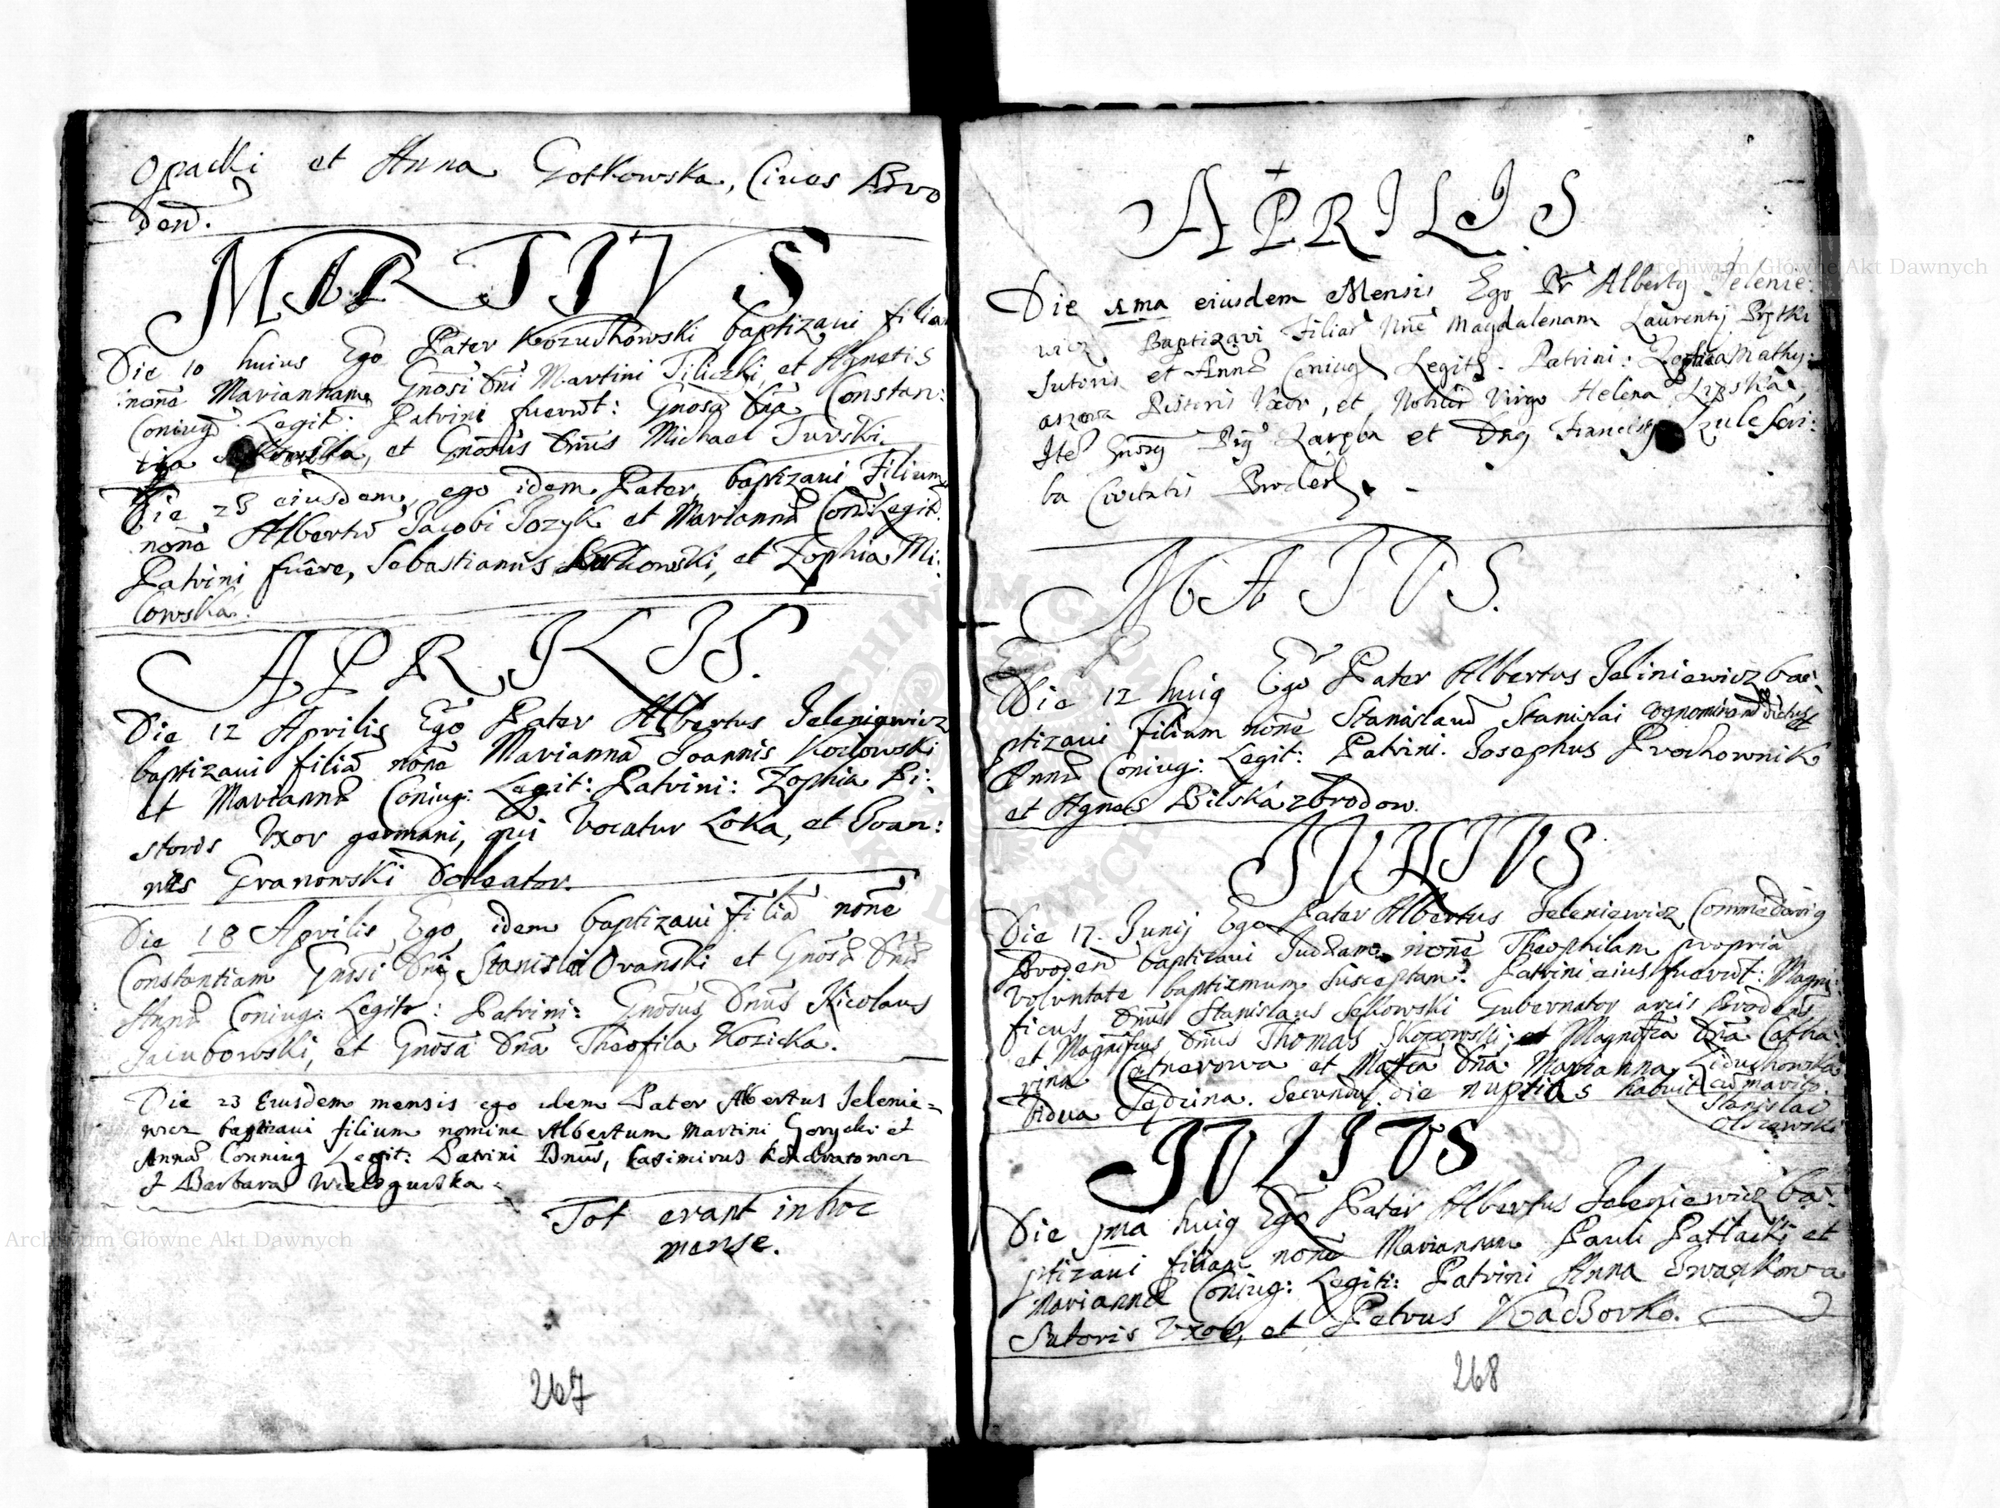 Opacki et Anna Gotkowska, Cives Bro
den̄.
MARTIVS
Die 10 huius Ego Pater Kozuchowski baptizavi filia
nōne Mariannam Gnōsi Dni Martini Siliczki, et Agnetis
Coniug Legit: Patrini fuerūt: Gnōsa Dn̄a Constan:
tia, et Gnōsus Dn̄us Michael Turski.
Die 28 eiusdem, ego idem Pater, baptizavi Filium
nōne Albertū Jacobi Jozyk et Mariannæ Con Legit.
Patrini fuēre, Sebastianus, et Zophia Mi:
lowska.
APRILIS.
Die 12 Aprilis Ego Pater Albertus Jeleniewicz
baptizavi filiā nōne Mariannā Joannis Kozlowski
et Mariannæ Coniug: Legit: Patrini: Zophia Pi:
storis Uxor germani, qui vocatur Loka, et Joan:
nes Granowski Doleator.
Die 18 Aprilis Ego idem baptizavi filiā nōne
Constantiam Gnōsi Dn̄i Stanislai Oranski et Gnōsæ Dnæ
Annæ Coniug: Legit: Patrini: Gnōsus Dnūs Nicolaus
Jacubowski, et Gnōsa Dn̄a Theofila Kozicka.
Die 23 Eiusdem mensis ego idem Pater Albertus Jelenie=
wicz baptizavi filium nomine Albertum Martini Gorycki et
Annæ Conniug Legit: Patrini Dnūs, Casimirus Kondratowicz
& Barbara Wielogurska.
Tot erant in hoc
mense.
267
APRILIS
Die 1ma eiusdem Mensis Ego Pr Albertg Jelenie:
wicz Baptizavi Filiā Nnē Magdalenam Laurentij Prytki
Sutoris et Annæ Coniug Legit. Patrini: Zophia Mathy:
aszowa Pistoris Uxor, et Nobilis Virgo Helena Lipska,
Ite Zaręba et Dng Francisg Szulc Scri:
ba Civitatis Broden
MAIVS.
Die 12 huig Ego Pater Albertus Jeliniewicz ba:
ptizavi Filium nōne Stanislaū Stanislai cognominand
Annæ Coniug: Legit: Patrini: Josephus Prochownik
et Agnes Bilska z brodow.
IUNIVS
Die 17. Junij Ego Pater Albertus Jeleniewicz Commēdarig
Broden̄ baptizavi Judæam nōne Theophilam propria
voluntate baptizmum susceptam. Patrini eius fuerūt: Magni:
ficus Dnūs Stanislaus Sekowski Gubernator arcis Brodens
et Magnificus Dnūs Thomas Skopowski, et Magnifica Dn̄a Catha
rina Catnerowa et Mafca Dn̄a Marianna Liduchowska
vidua. Secundū die nuptias habuit cū marito
Stanislao
Olszewski
IVLIVS
Die 1ma huig Ego Pater Albertus Jeleniewicz ba:
ptizavi filiam nōne Mariannam Pauli Pattacki et
Mariannæ Coniug: Legiti: Patrini Anna Iwankowa
Sutoris Uxor, et Petrus Kaczorko.
268
Archiwum Główne Akt Dawnych
Archiwum Główne Akt Dawnych